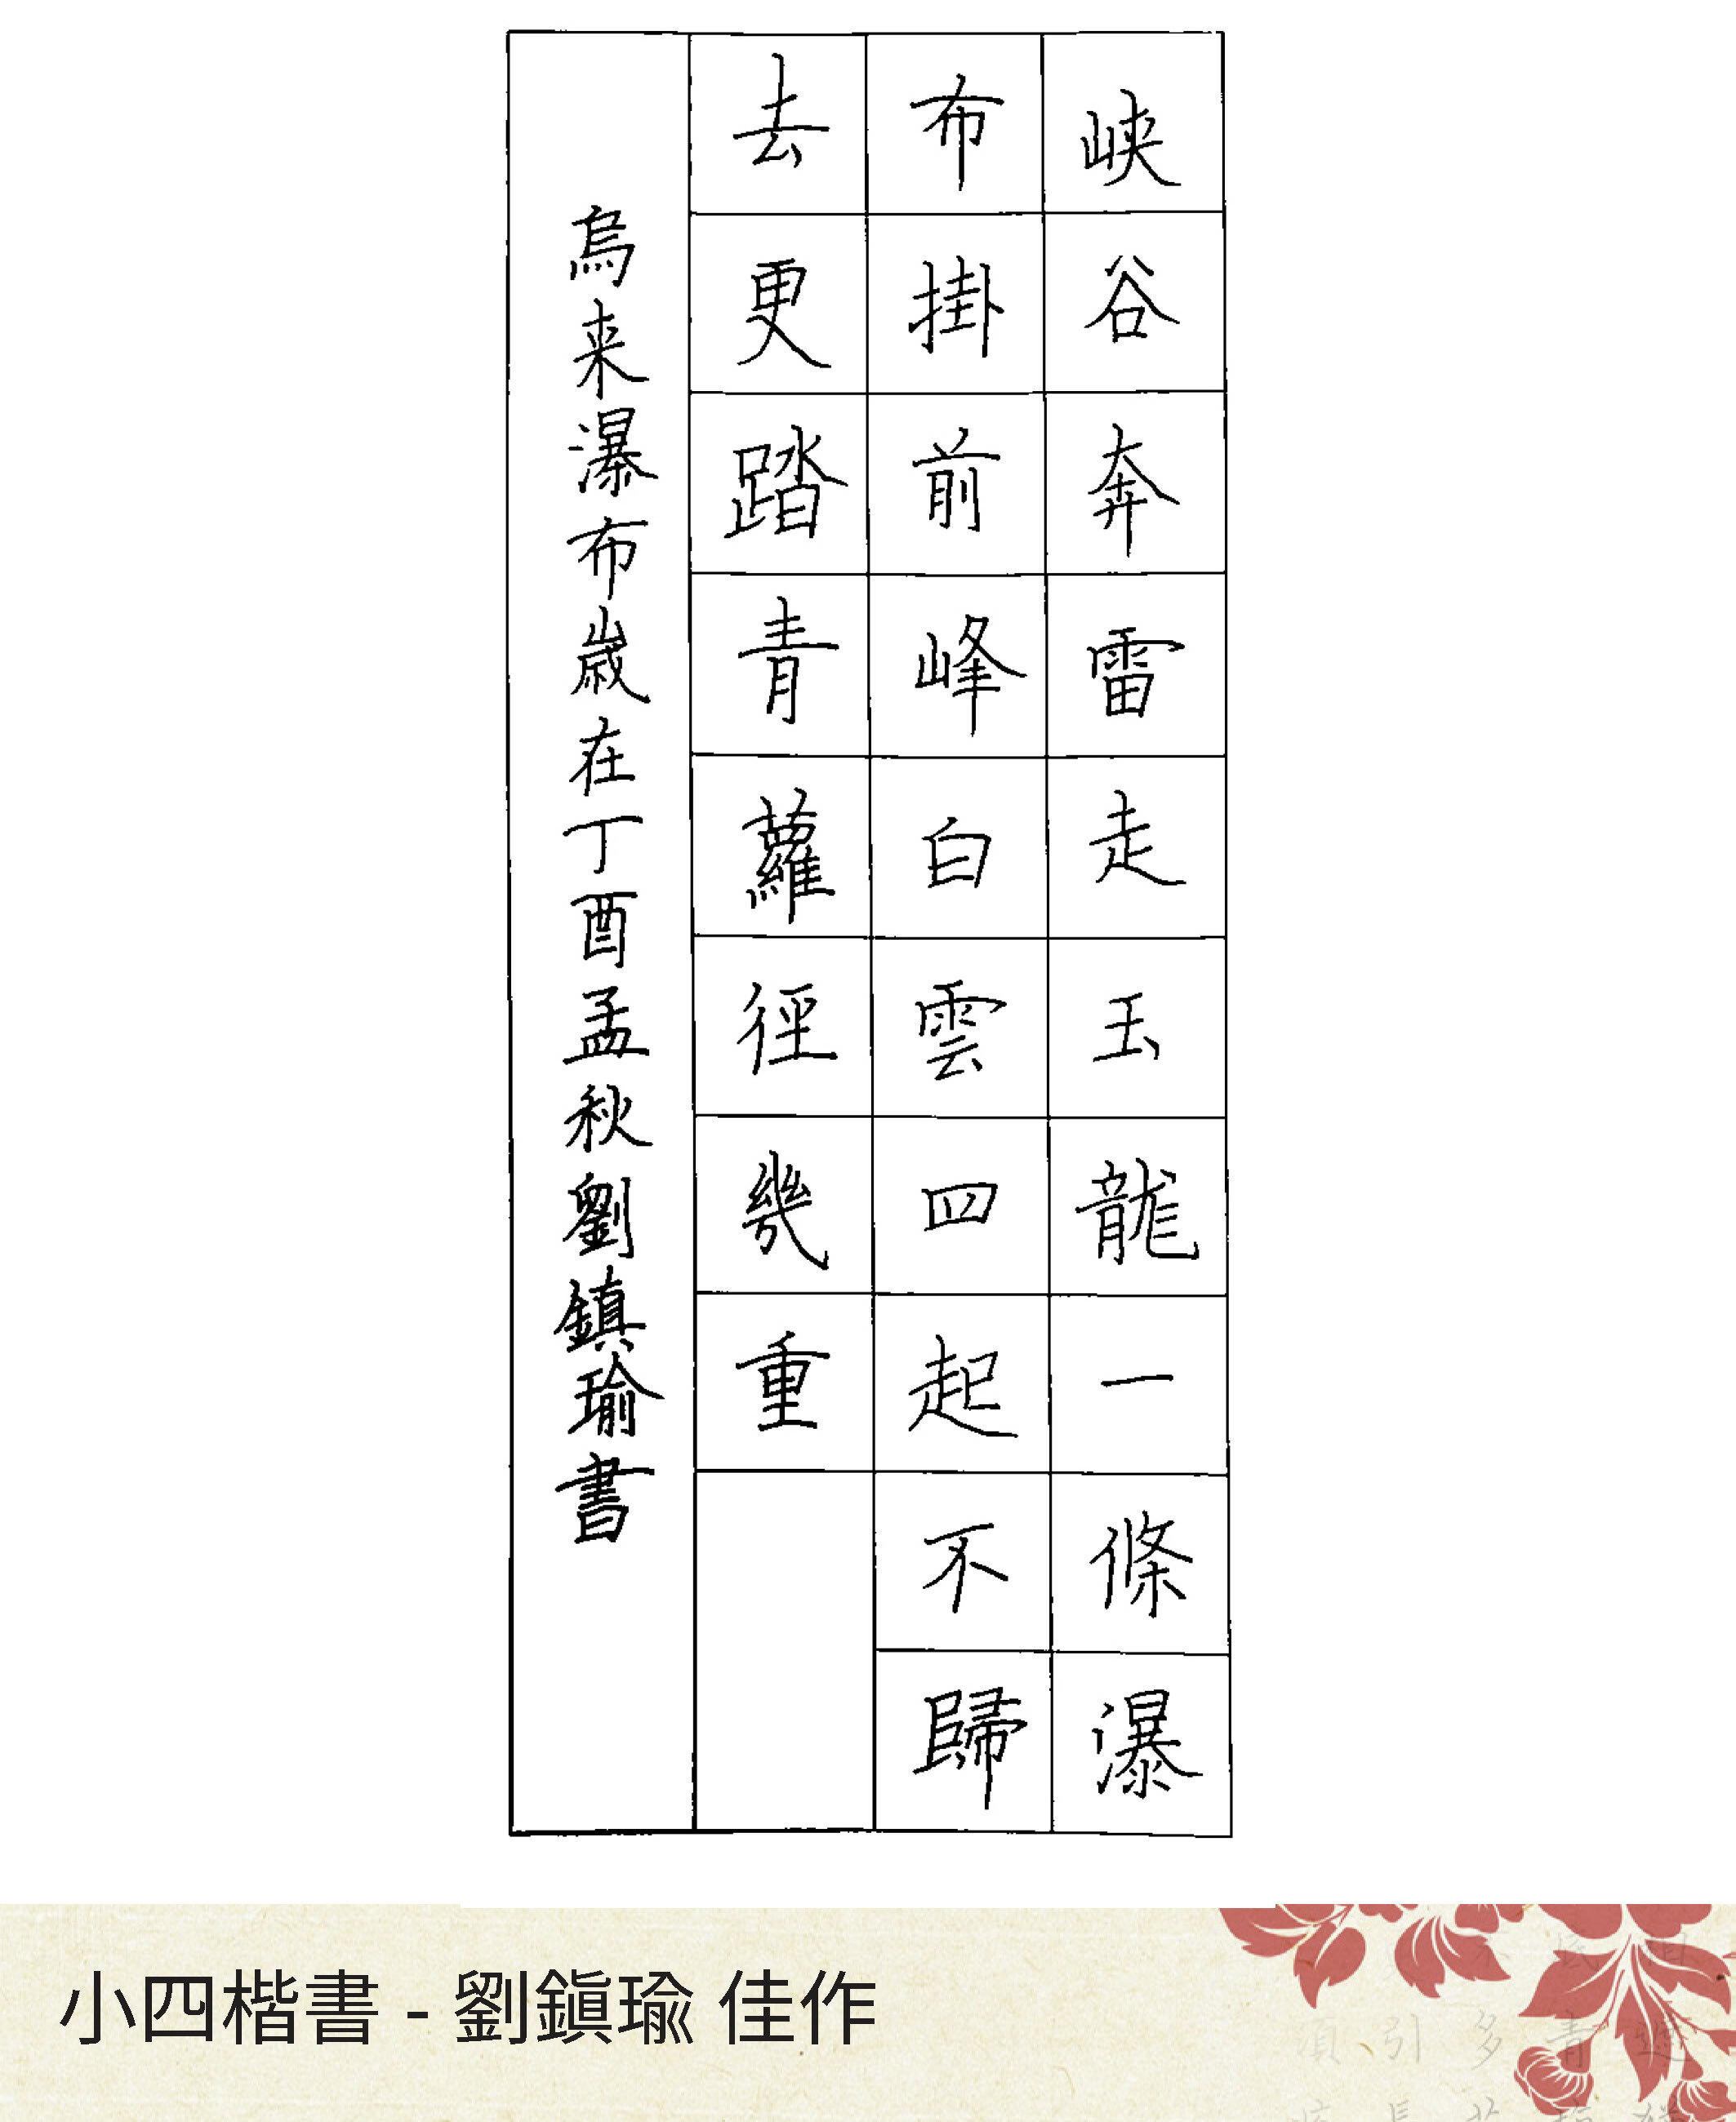 峽谷奔雷走玉龍一條瀑
布掛前峰白雲四起不歸
去更踏青蘿徑幾重
烏来瀑布歲在丁酉孟秋劉鎮瑜書
小四楷書 - 劉鎮瑜 佳作
引多青